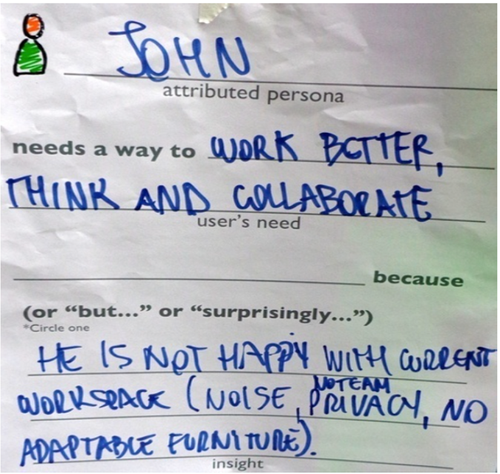 JOHN
attributed persona
needs a way to WORK BETTER,
THINK AND COLLABORATE
user's need
because
(or “but...” or “surprisingly...”)
*Circle one
HE IS NOT HAPPY WITH CURRENT
NO TEAM
WORKSPACE (NOISE, PRIVACY, NO
ADAPTABLE FURNITURE).
insight